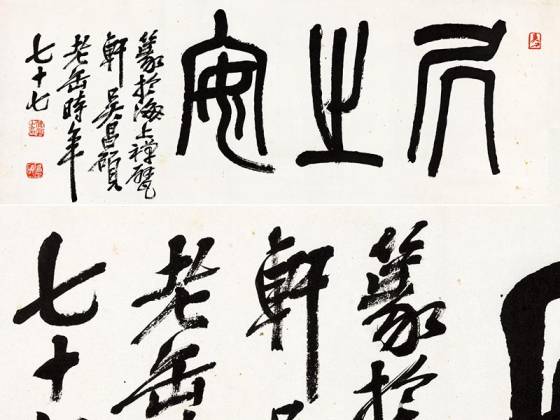 凥之安
篆於海上禪甓
軒吳昌碩
老缶時年
七十七
篆於
軒
老缶
七十